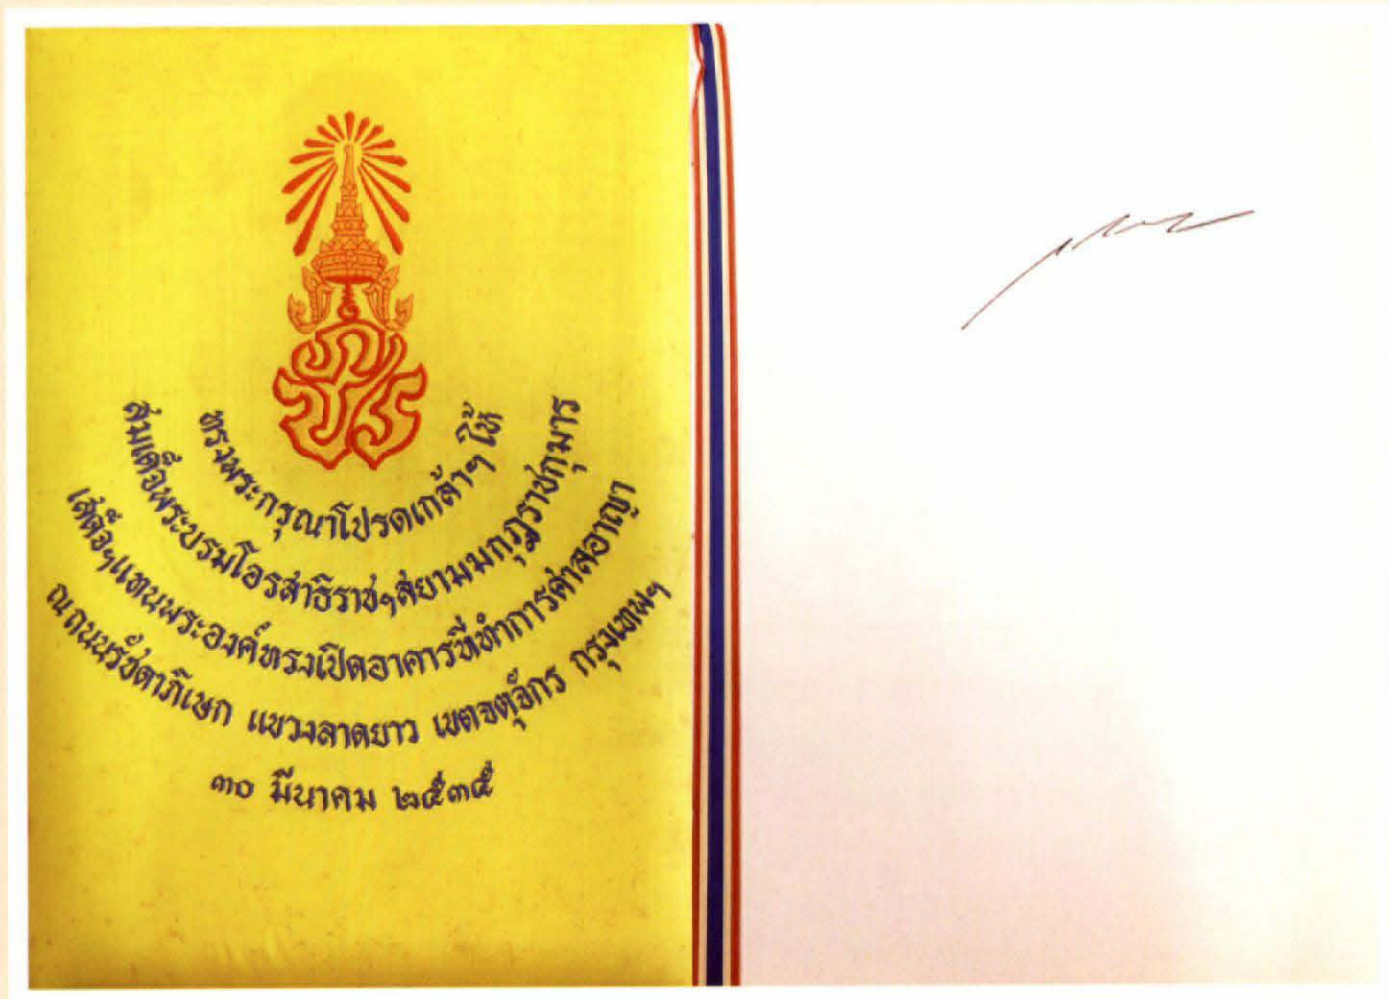 ภปร
ทรงพระกรุณาโปรดเกล้าฯ ให้
สมเด็จพระบรมโอรสาธิราชฯสยามมกุฎราชกุมาร
เสด็จฯแทนพระองค์ทรงเปิดอาคารที่ทำการศาลอาญา
ณ ถนนรัชดาภิเษก แขวงลาดยาว เขตจตุจักร กรุงเทพฯ
๓๐ มีนาคม ๒๕๓๕